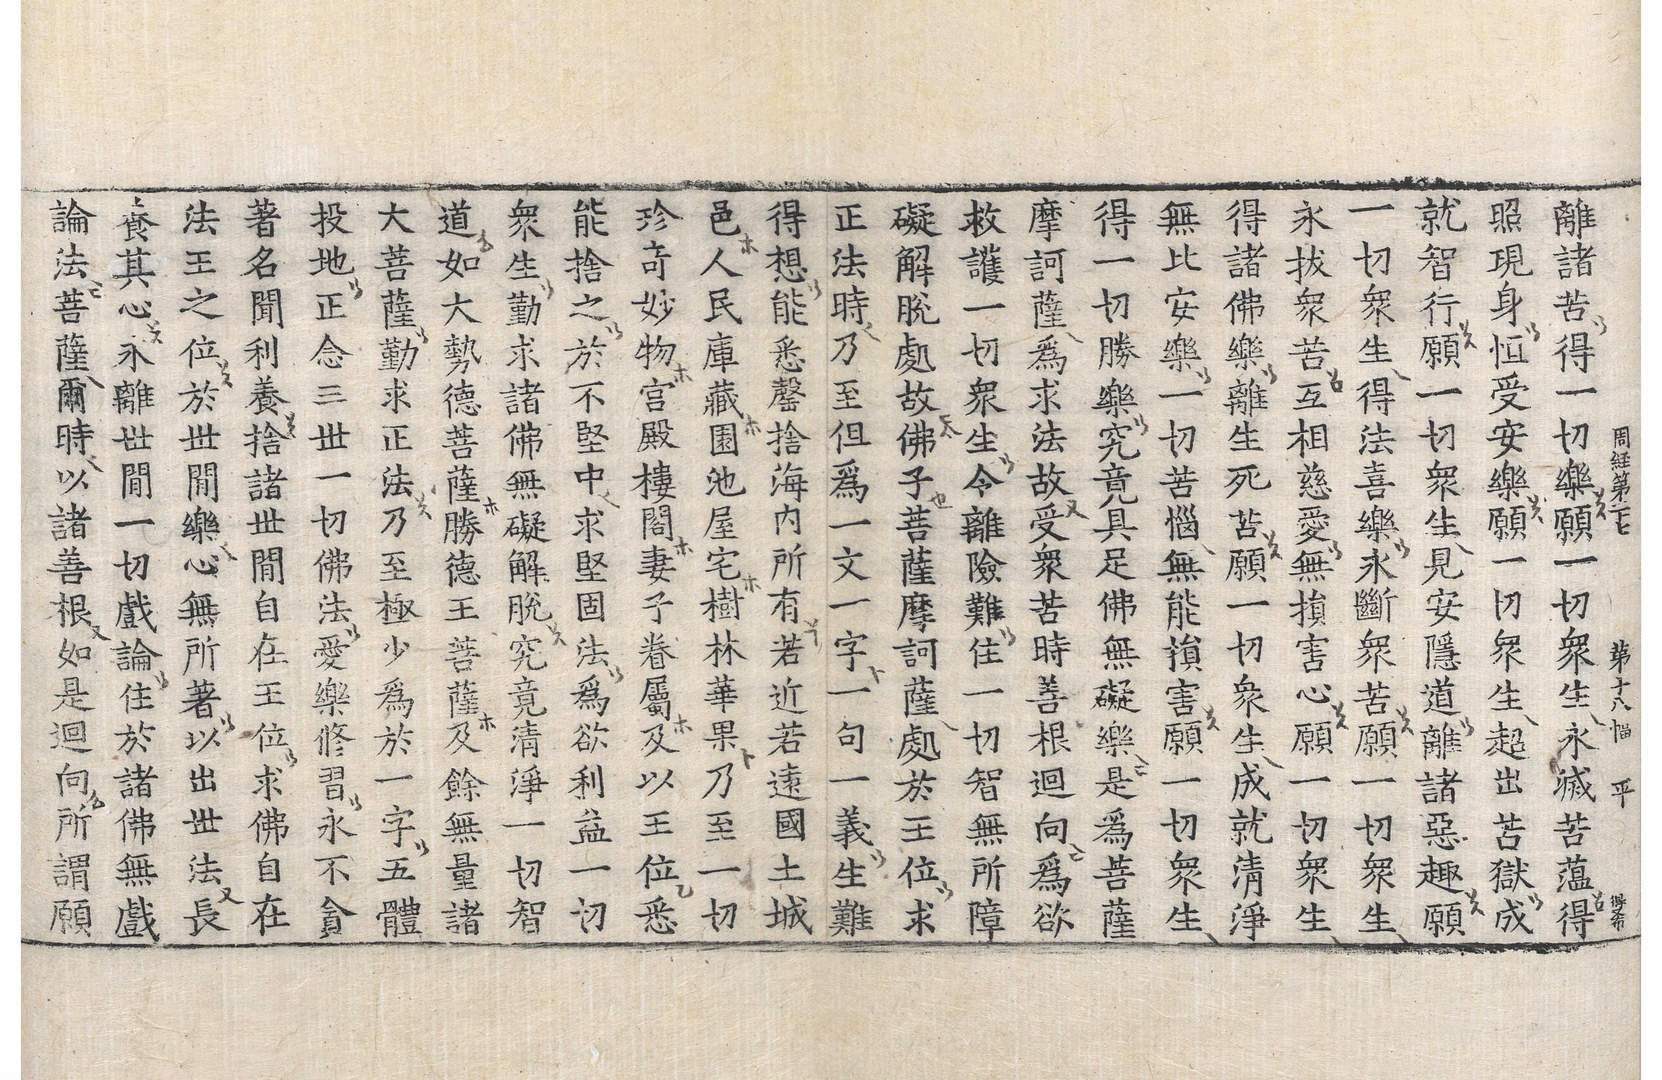 周経第二七 第十八幅 平
離諸苦得一切樂願一切衆生永滅苦蘊得
照現身恒受安樂願一切衆生超出苦獄成
就智行願一切衆生見安隱道離諸惡趣願
一切衆生得法喜樂永斷衆苦願一切衆生
永拔衆苦互相慈愛無損害心願一切衆生
得諸佛樂離生死苦願一切衆生成就清淨
無比安樂一切苦惱無能損害願一切衆生
得一切勝樂究竟具足佛無礙樂是爲菩薩
摩訶薩爲求法故受衆苦時善根迴向爲欲
救護一切衆生令離險難住一切智無所障
礙解脫處故佛子菩薩摩訶薩處於王位求
正法時乃至但爲一文一字一句一義生難
得想能悉罄捨海內所有若近若遠國土城
邑人民庫藏園池屋宅樹林華果乃至一切
珍奇妙物宮殿樓閣妻子眷屬及以王位悉
能捨之於不堅中求堅固法爲欲利益一切
衆生勤求諸佛無礙解脫究竟清淨一切智
道如大勢德菩薩勝德王菩薩及餘無量諸
大菩薩勤求正法乃至極少爲於一字五體
投地正念三世一切佛法愛樂修習永不貪
著名聞利養捨諸世間自在王位求佛自在
法王之位於世間樂心無所著以出世法長
養其心永離世間一切戲論住於諸佛無戲
論法菩薩爾時以諸善根如是迴向所謂願